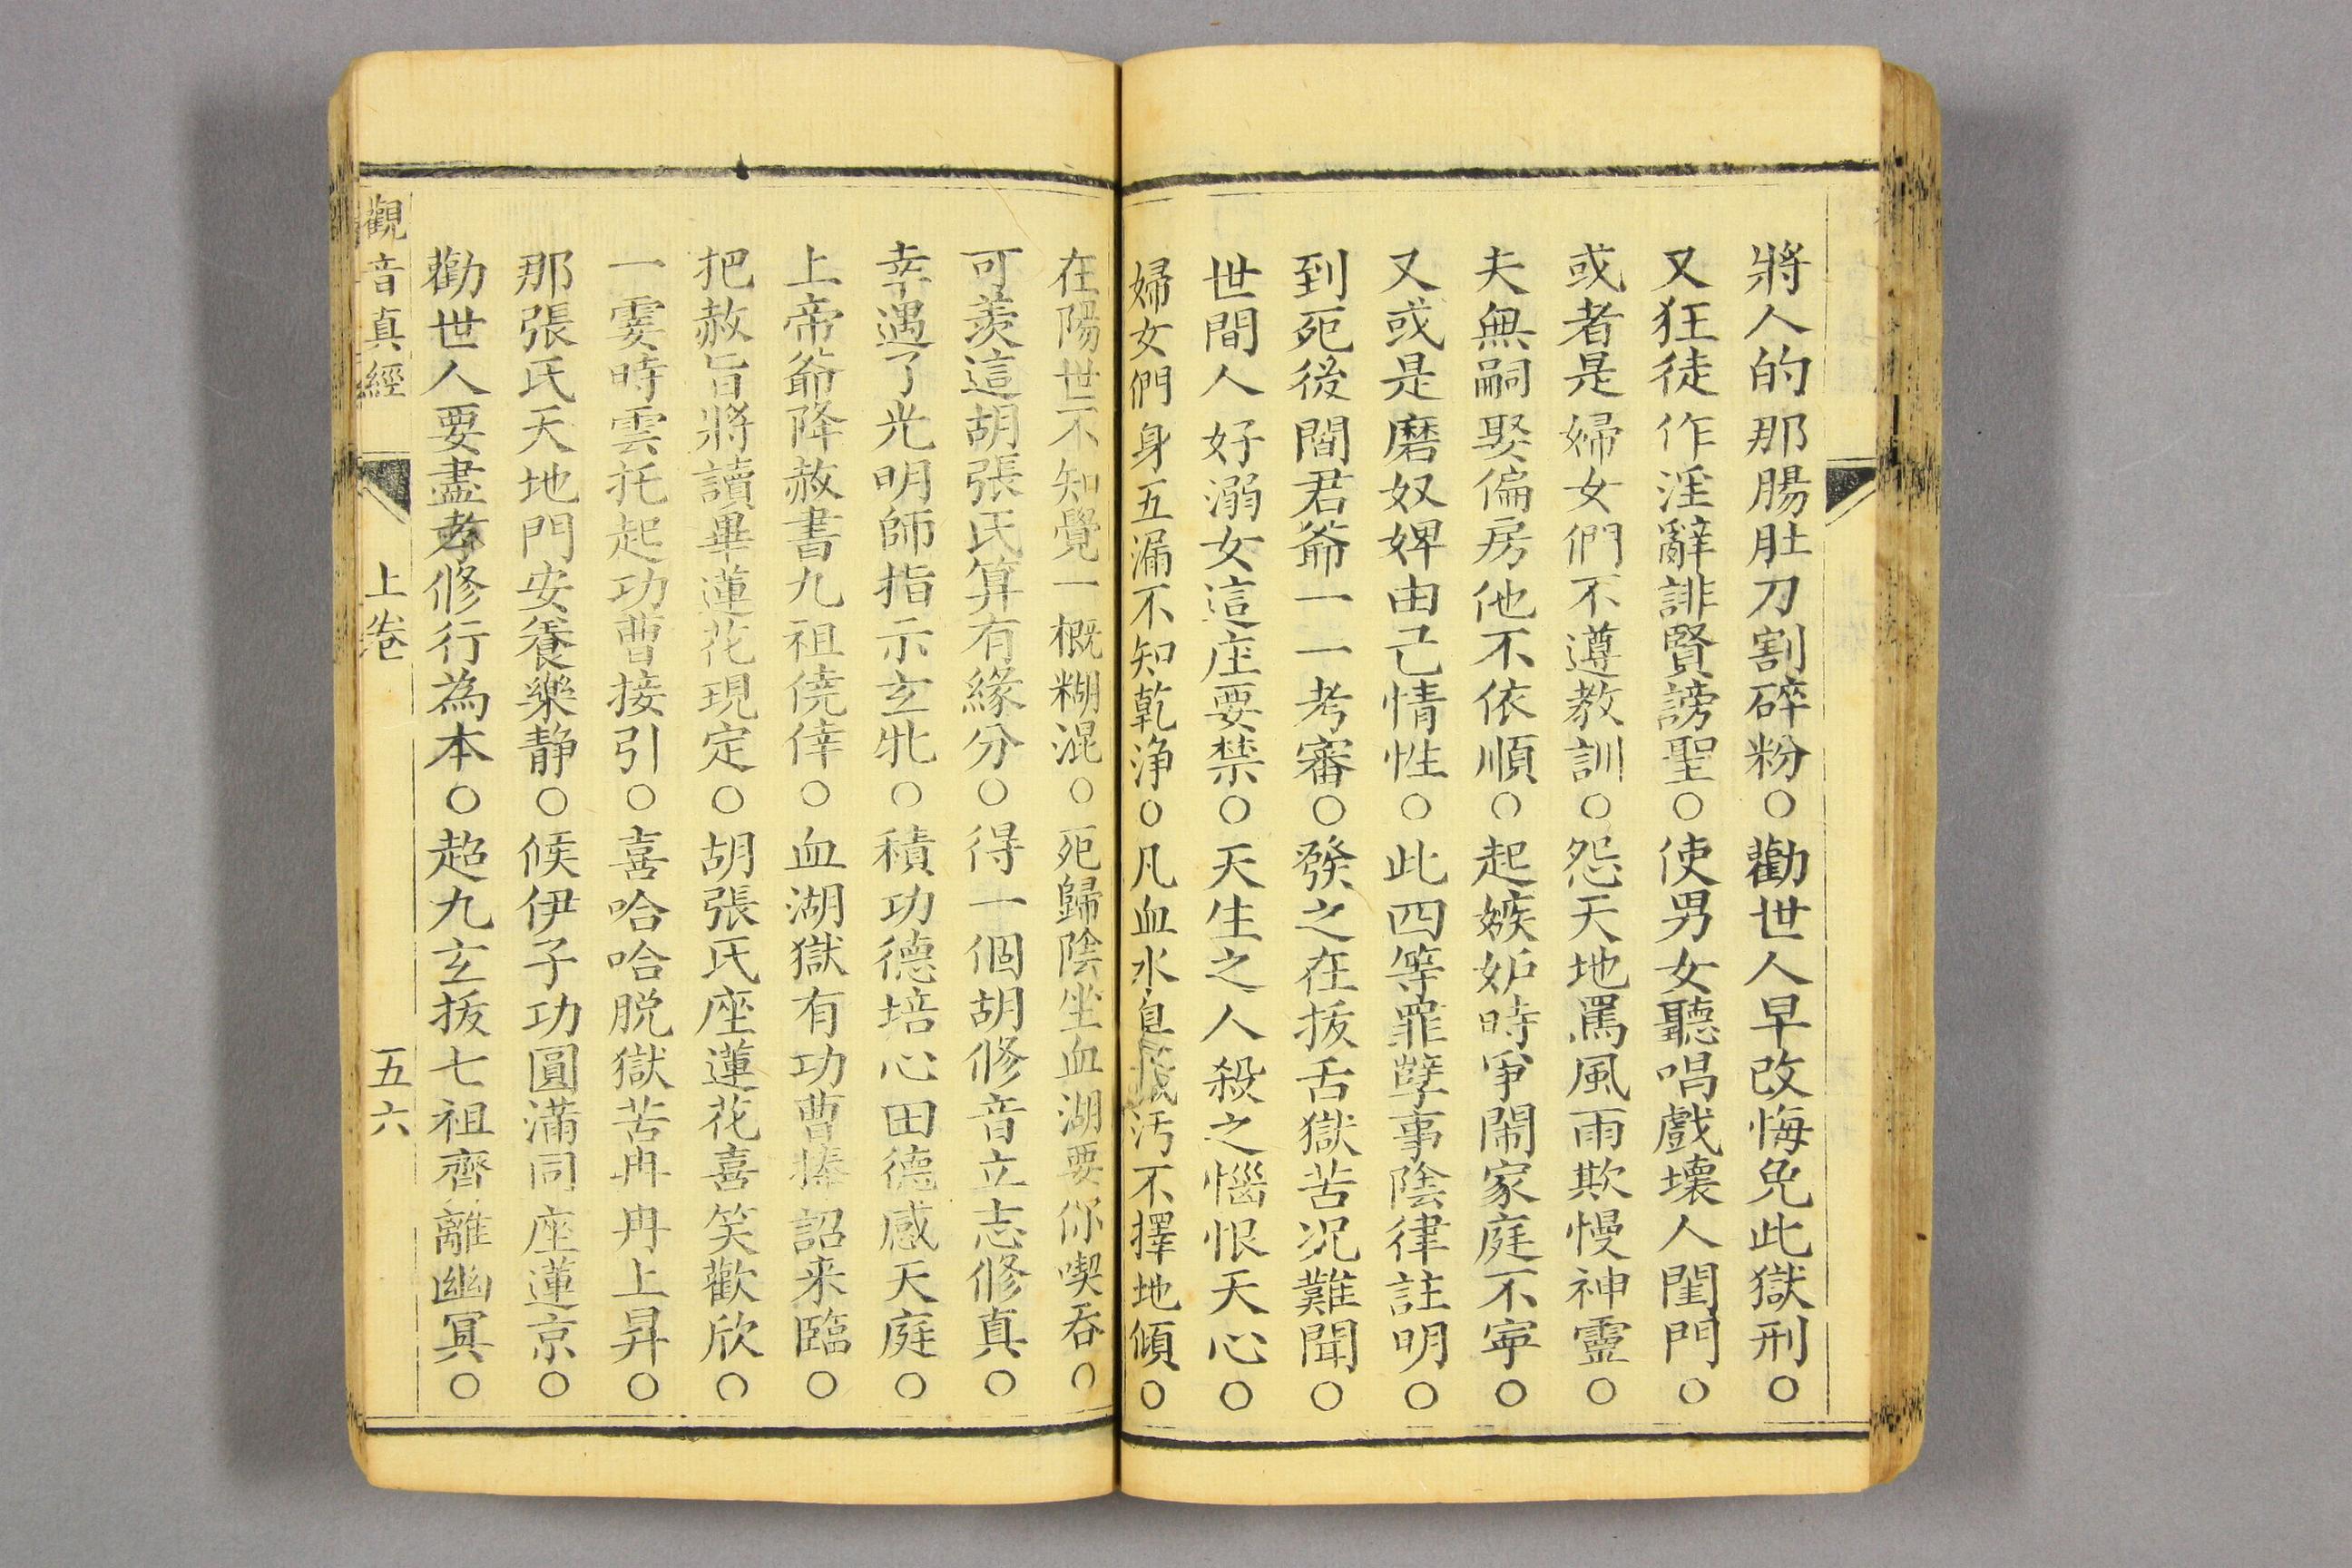 將人的那腸肚刀割碎粉○勸世人早改悔免此獄刑○
又狂徒作淫辭誹賢謗聖○使男女聽唱戲壞人閨門○
或者是婦女們不遵教訓○怨天地罵風雨欺慢神靈○
夫無嗣娶偏房他不依順○起嫉妒時爭鬧家庭不寧○
又或是磨奴婢由己情性○此四等罪孽事陰律註明○
到死後閻君爺一一考審○發之在拔舌獄苦况難聞○
世間人好溺女這座要禁○天生之人殺之惱恨天心○
婦女們身五漏不知乾净○凡血水臭穢污不擇地傾○
在陽世不知覺一概糊混○死歸陰坐血湖要你喫吞○
可羨這胡張氏算有緣分○得一個胡修音立志修真○
幸遇了光明師指示玄牝○積功德培心田德感天庭○
上帝爺降赦書九祖僥倖○血湖獄有功曹捧詔来臨○
把赦旨將讀畢蓮花現定○胡張氏座蓮花喜笑歡欣○
一霎時雲托起功曹接引○喜哈哈脱獄苦冉冉上昇○
那張氏天地門安養樂静○候伊子功圓滿同座蓮京○
勸世人要盡孝修行為本○超九玄拔七祖齊離幽冥○
觀音真經 上卷 五六